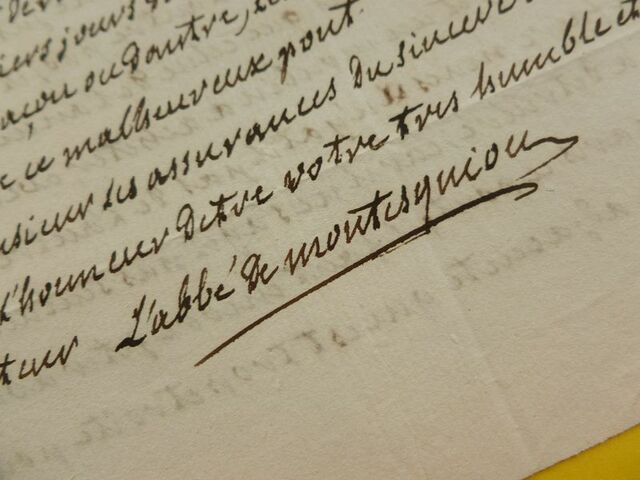 iers jours
açon ou d'autre,
ce malheureux pont.
nsieur les assurances du sincere
L'honneur d'etre votre tres humble et
teur L'abbé de montesquiou